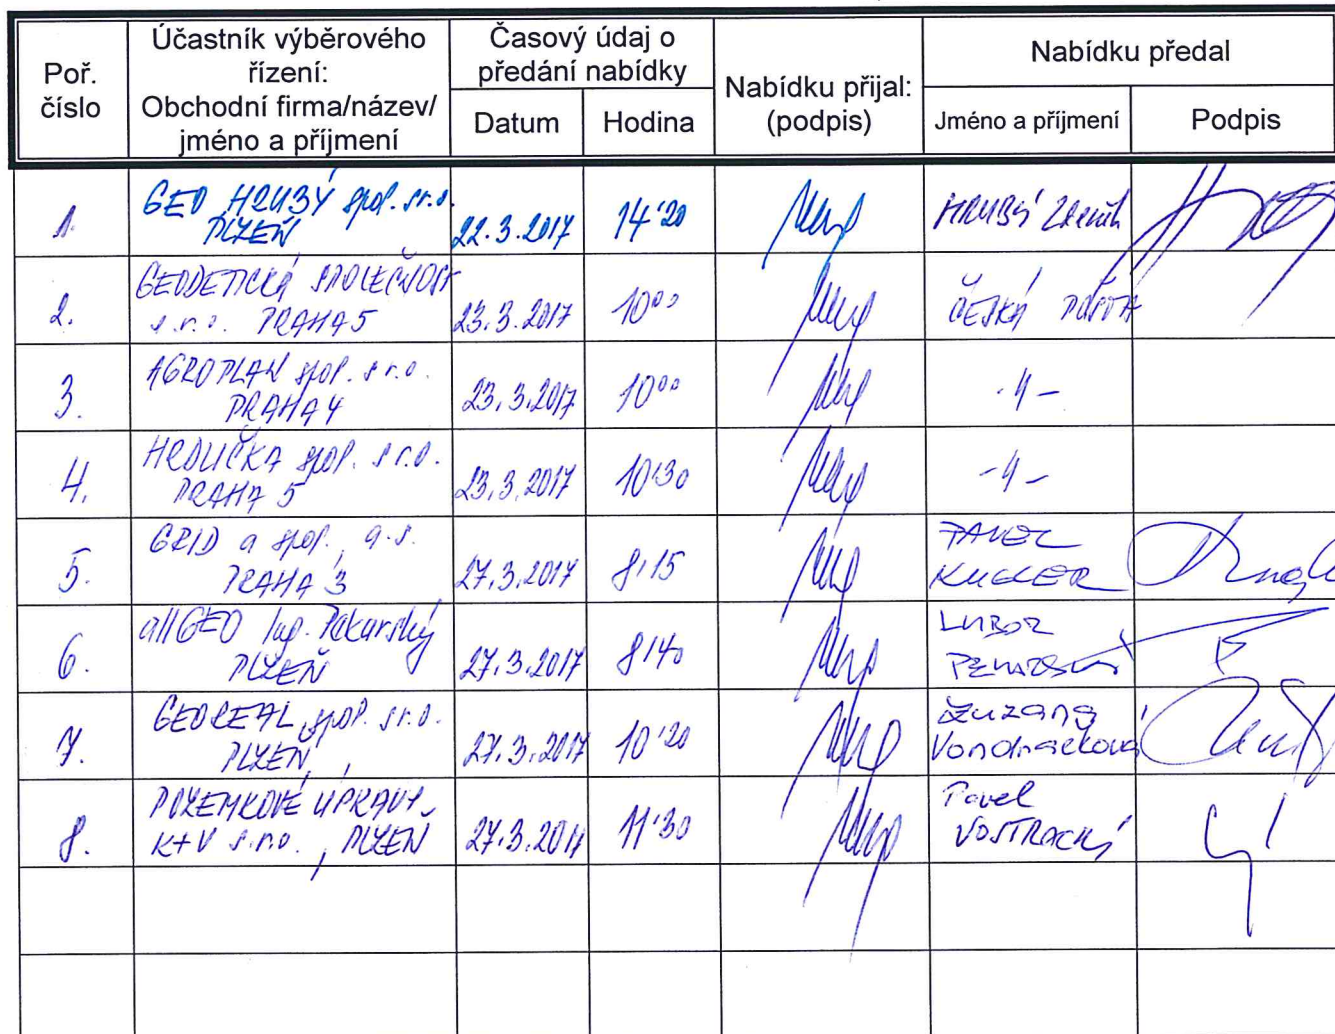 Poř. číslo
Účastník výběrového řízení:
Obchodní firma/název/
jméno a příjmení
Časový údaj o předání nabídky
Datum
Hodina
Nabídku přijal:
(podpis)
Nabídku předal
Jméno a příjmení
Podpis
1. GEO HRUBÝ spol. s r.o. PLZEŇ 22.3.2017 14:20 HRUBÝ Zdeněk
2. GEODETICKÁ SPOLEČNOST s.r.o. PRAHA 5 23.3.2017 10:00 ČESKÁ POŠTA
3. AGROPLAN spol. s r.o. PRAHA 4 23.3.2017 10:00 -"-
4. HRDLIČKA spol. s r.o. PRAHA 5 23.3.2017 10:30 -"-
5. GRID a spol., a.s. PRAHA 3 27.3.2017 8:15 PAVEL
6. allGEO Ing. Pekarský PLZEŇ 27.3.2017 8:40 LUBOR PEKARSKÝ
7. GEOREAL spol. s r.o. PLZEŇ 27.3.2017 10:20 Zuzana Vondráčková
8. POZEMKOVÉ ÚPRAVY K+V s.r.o., PLZEŇ 27.3.2017 11:30 Pavel VOSTRACKÝ